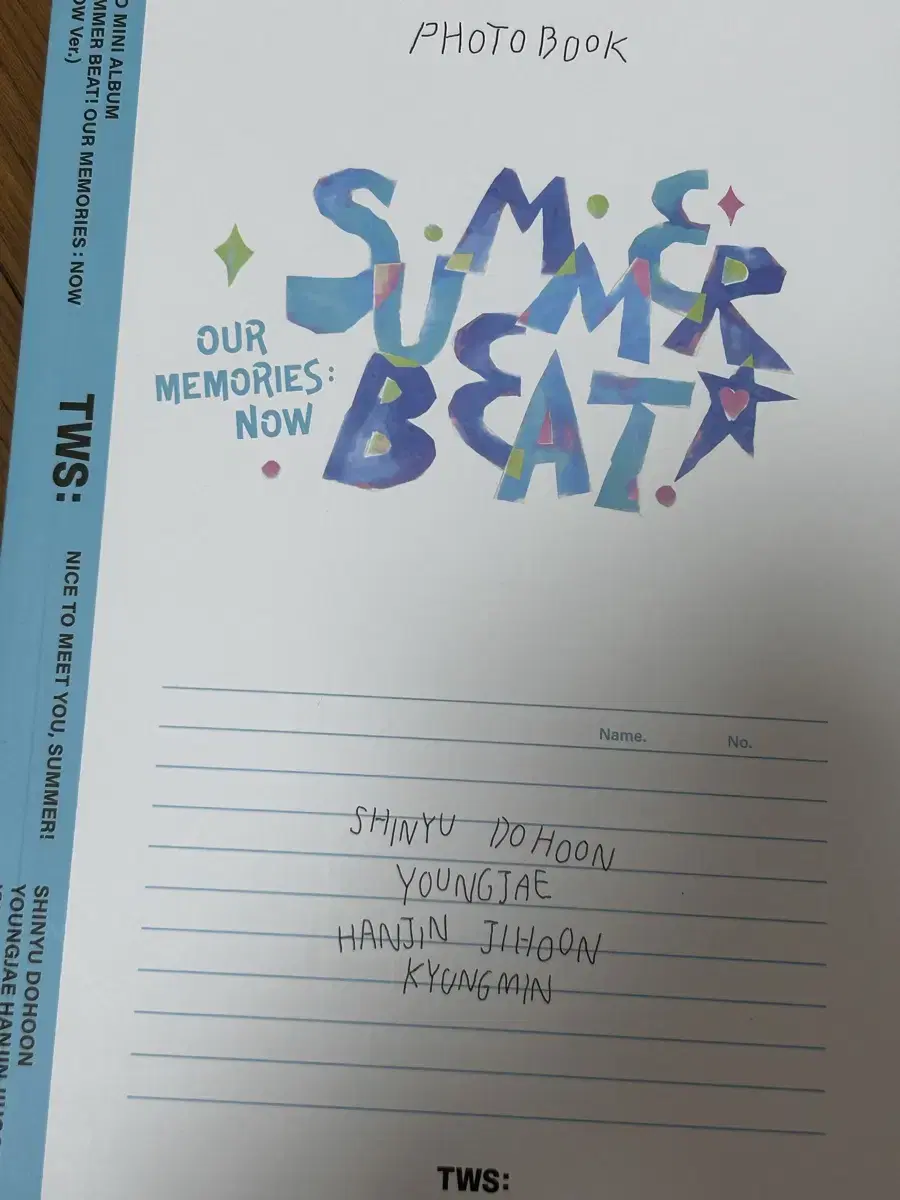 MINI ALBUM
SUMMER BEAT! OUR MEMORIES : NOW
Ver.)
TWS:
NICE TO MEET YOU, SUMMER!
SHINYU DOHOON
YOUNGJAE HANJIN
PHOTO BOOK
SUMMER
BEAT
OUR
MEMORIES:
NOW
Name. No.
SHINYU DOHOON
YOUNGJAE
HANJIN JIHOON
KYUNGMIN
TWS: